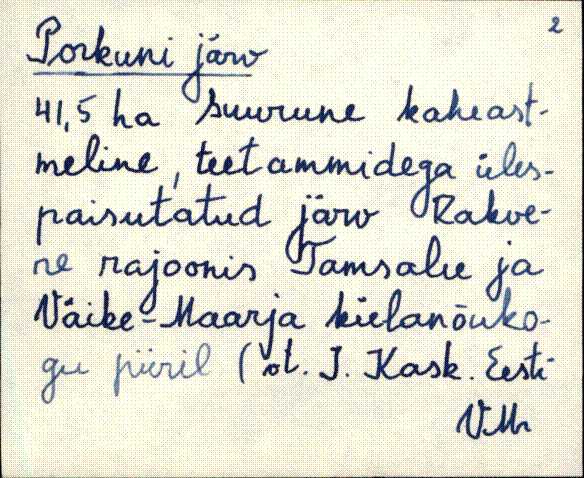 2
Porkuni järv
41,5 ha suurune kaheast-
meline, teetammidega üles-
paisutatud järv Rakve-
re rajoonis Tamsalu ja
Väike-Maarja külanõuko-
gu piiril (vt. J. Kask. Eesti
VMr